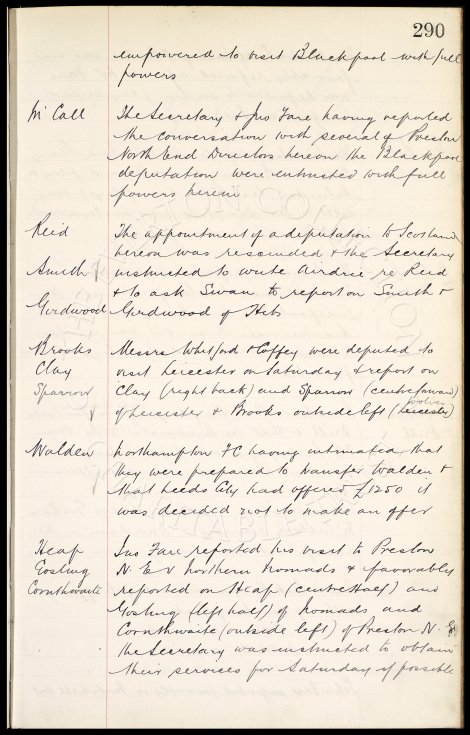 290
empowered to visit Blackpool with full
powers
McCall The Secretary & Jno Fare having reported
the conversation with several of Preston
North End Directors hereon the Blackpool
deputation were entrusted with full
powers herein
Reid The appointment of a deputation to Scotland
hereon was rescinded & the Secretary
Smith instructed to write Airdrie re Reid
& to ask Swan to report on Smith &
Girdwood Girdwood of Hibs
Brooks Messrs Whitford & Coffey were deputed to
Clay visit Leicester on Saturday & report on
Sparrow Clay (right back) and Sparrow (centre forward)
of Leicester & Brooks outside left (Leicester)
Walden Northampton FC having intimated that
they were prepared to transfer Walden &
that Leeds City had offered £1250 it
was decided not to make an offer
Heap Jno Fare reported his visit to Preston
Gosling N.E v Northern Nomads & favorably
Cornthwaite reported on Heap (centre Half) and
Gosling (left half) of Nomads and
Cornthwaite (outside left) of Preston N.E
the Secretary was instructed to obtain
their services for Saturday if possible